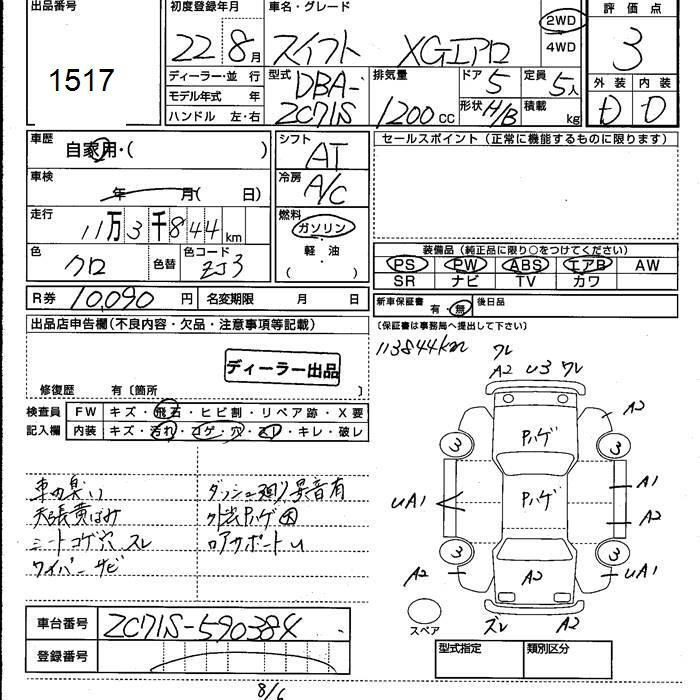 出品番号
1517
初度登録年月
22 8月
車名・グレード
スイフト XGエアロ
2WD
4WD
評価点
3
ディーラー・並行
モデル年式 年
ハンドル 左・右
型式
DBA-
ZC71S
排気量
1200 cc
ドア 5
形状 H/B
定員 5人
積載 kg
外装 内装
D D
車歴
自家用・( )
車検
年 月( 日)
走行
11万3千844km
色
クロ
色替
色コード
ZJ3
シフト
AT
冷房
A/C
燃料
ガソリン
・
軽・油
( ・ )
セールスポイント (正常に機能するものに限ります)
装備品 (純正品に限り○をつけてください)
PS PW ABS エアB AW
SR ナビ TV カワ
R券 10,090 円 名変期限 月 日
新車保証書 有・無 後日品
(保証書は事務局へ提出して下さい)
出品店申告欄(不良内容・欠品・注意事項等記載)
ディーラー出品
修復歴 有〔箇所 〕
検査員 FW キズ・飛石・ヒビ割・リペア跡・X要
記入欄 内装 キズ・汚れ・コゲ・穴・スレ・キレ・破レ
113844km
ワレ
A2 U3 ワレ
A2
Pハゲ
3 3
A1
UA1 Pハゲ
A2
3 3
A2 A2 UA1
ズレ A2
スペア
車内臭い
天張黄ばみ
シートコゲ穴 スレ
ワイパーサビ
ダッシュ廻り異音有
外装Pハゲ大
ロアサポートU
車台番号 ZC71S-590384
登録番号
型式指定 類別区分
8/6